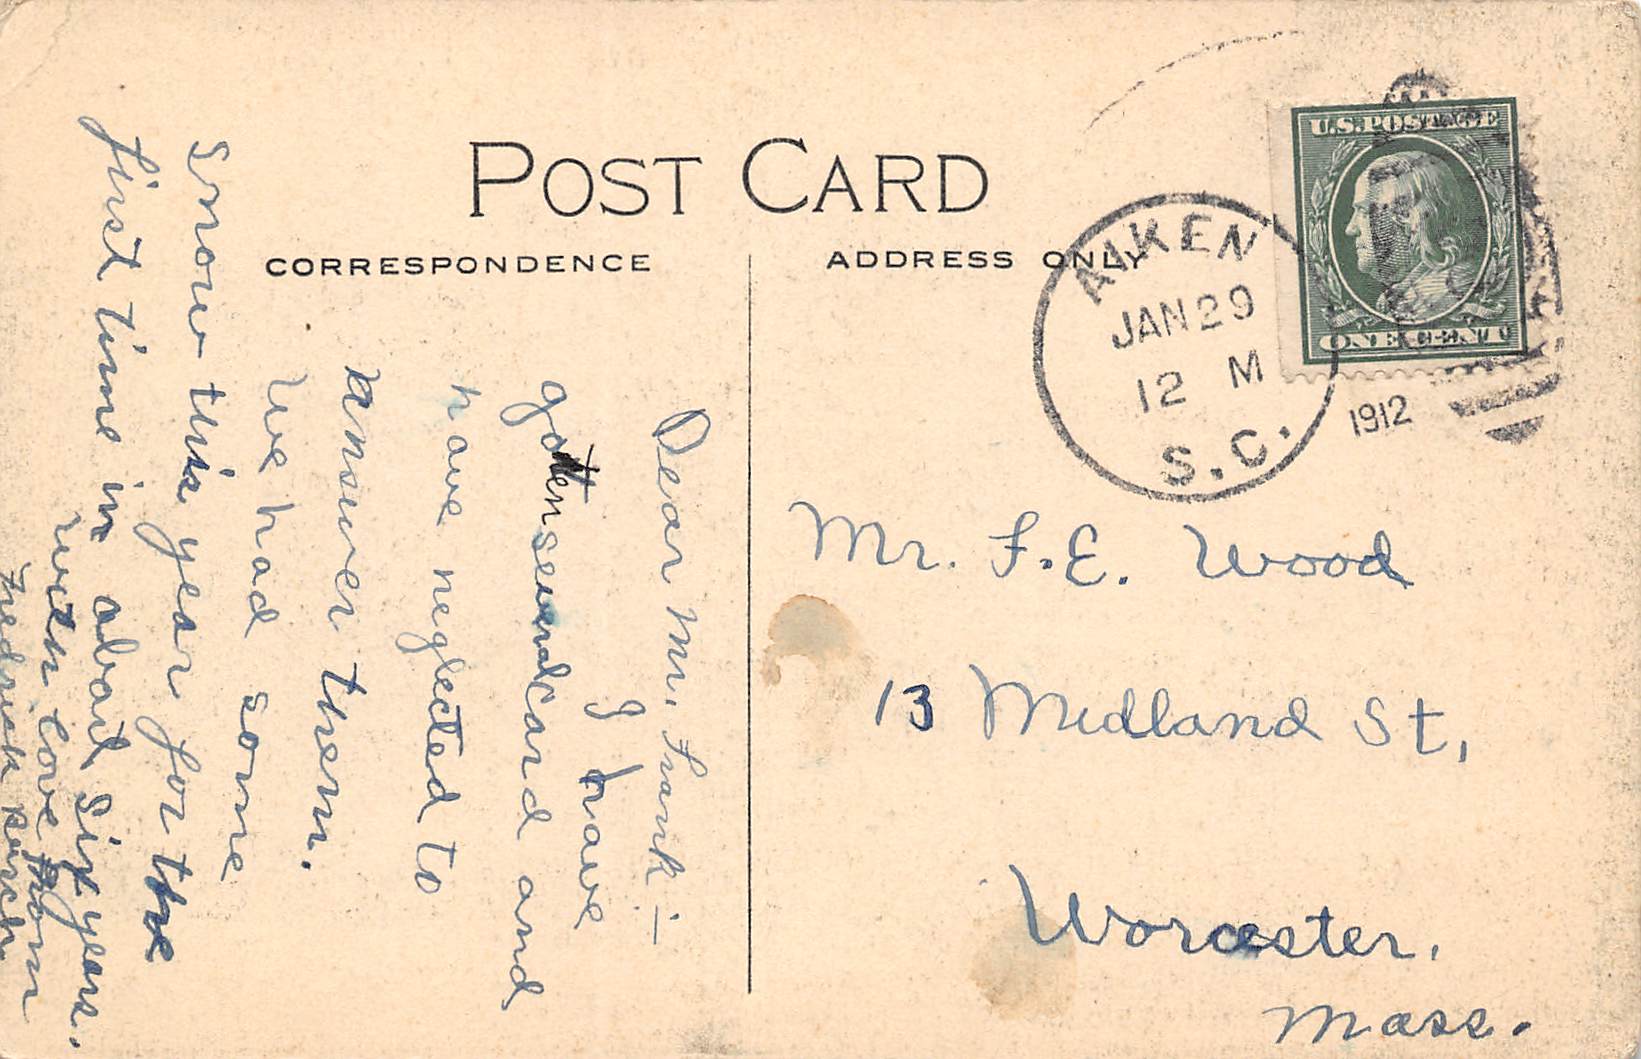 POST CARD
CORRESPONDENCE
ADDRESS ONLY
U.S. POSTAGE
ONE CENT
AIKEN
JAN 29
12 M
1912
S.C.
Mr. F.E. Wood
13 Midland St,
Worcester,
Mass.
Dear Mr. Frank:—
I have
gotten several card and
have neglected to
answer them.
We had some
snow this year for the
first time in about six years.
with love from
Fredrick